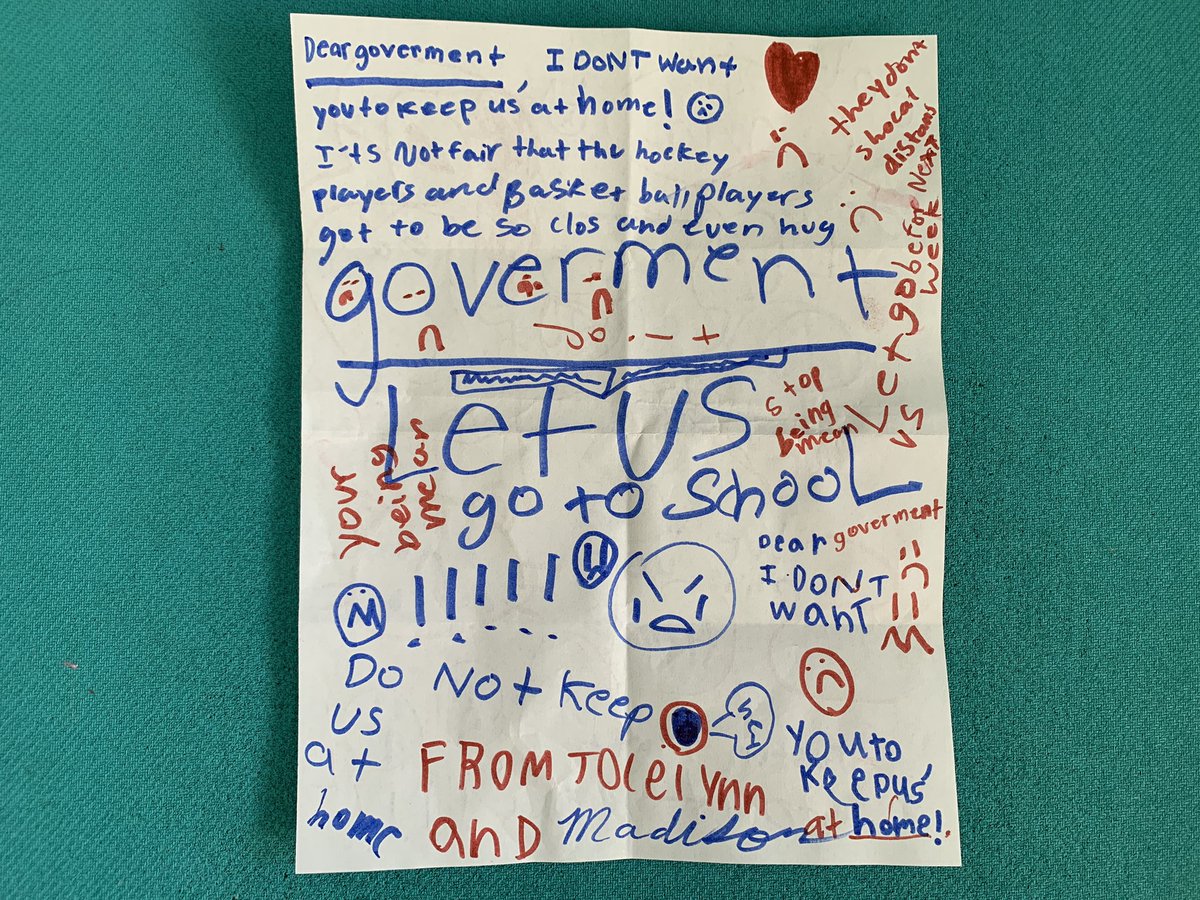 Dear goverment, I DONT want
you to keep us at home!
I'ts Not fair that the hockey
players and Basket ball players
got to be so clos and even hug
they dont
shocal
distans
goverment
do it
Let us
go before Next
week
Let US
go to School
stop
being
mean
your
being
mean
!!!!!!
Dear goverment
I DONT
want
you to
keep us
at home!
Do Not keep
us
at
home
FROM JOCelynn
and Madison